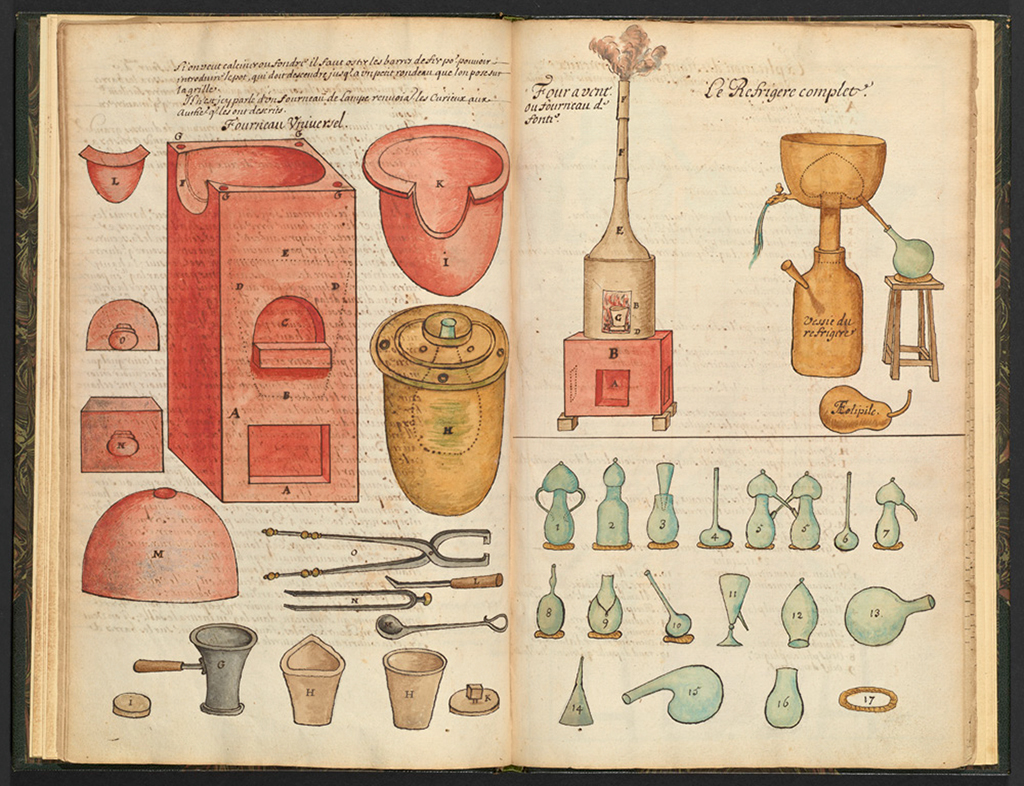 Si on veut calciner ou fondre il faut oster les barres de fer por pouuoir
introduire le pot, qui doit descendre jusq'a un petit rondeau que lon pose sur
la grille.
parlé d'un Fourneau de lampe les Curieux aux
les ont descrits.
Fourneau Vniversel.
G G
L
F
G G
K
I
E
D D
C
O
B
N
A
H
A
M
O
L
N
M
G
H
H
K
I
Four a vent
ou fourneau de
fonte
Le Refrigere complet
F
F
E
B
C
D
B
A
Vessie du
refrigere
Æolipile.
1 2 3 4 5 5 6 7
8 9 10 11 12 13
14 15 16 17